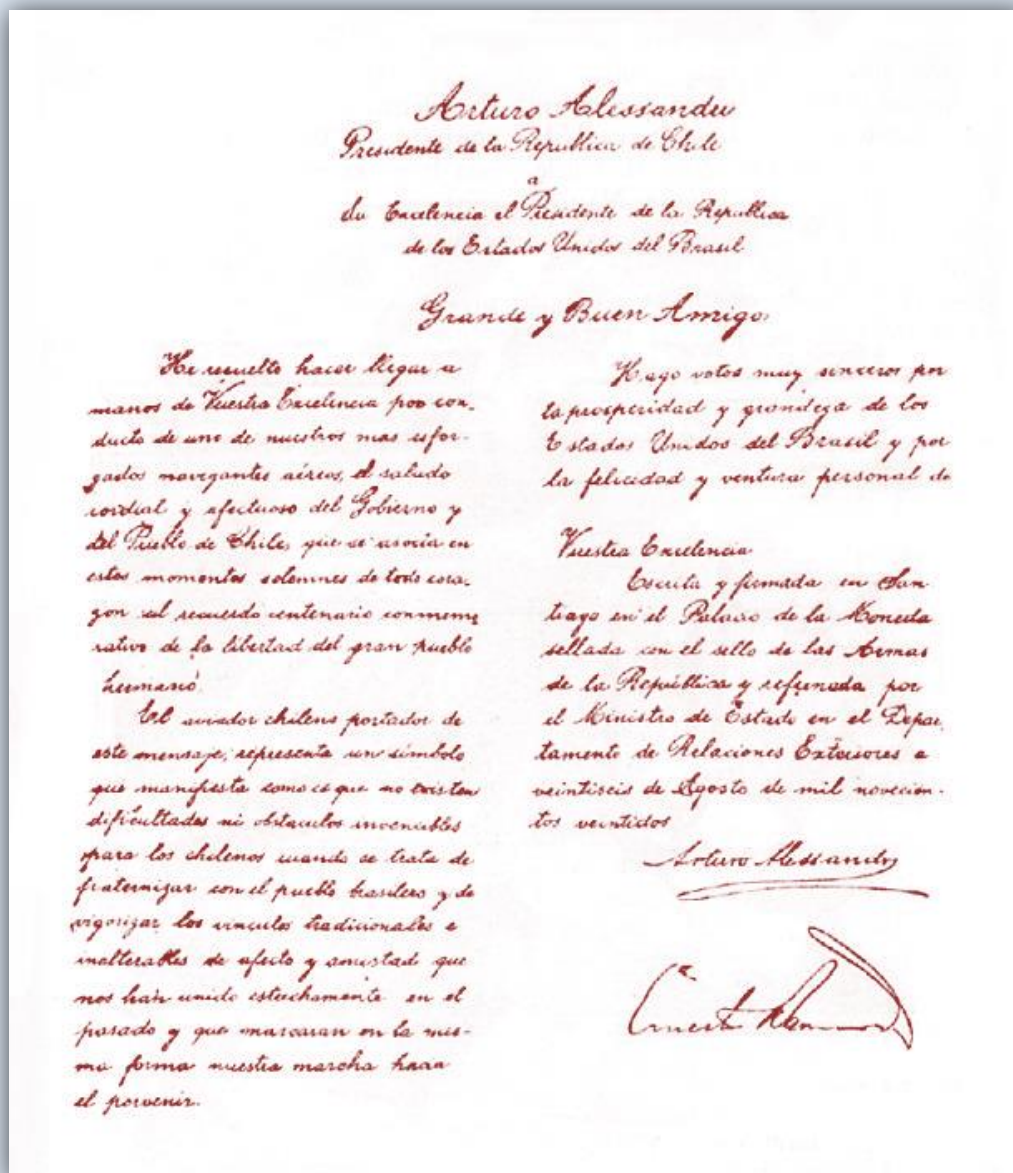 Arturo Alessandri
Presidente de la Republica de Chile
a
Su Excelencia el Presidente de la Republica
de los Estados Unidos del Brasil
Grande y Buen Amigo:
He resuelto hacer llegar a
manos de Vuestra Excelencia por con-
ducto de uno de nuestros mas esfor-
zados navegantes aéreos, el saludo
cordial y afectuoso del Gobierno y
del Pueblo de Chile, que se asocia en
estos momentos solemnes de todo cora-
zon al recuerdo centenario conmemo
rativo de la libertad del gran pueblo
hermano.
El aviador chileno portador de
este mensaje, representa un símbolo
que manifiesta como es que no existen
dificultades ni obstaculos invencibles
para los chilenos cuando se trata de
fraternizar con el pueblo brasilero y de
vigorizar los vinculos tradicionales e
inalterables de afecto y amistad que
nos han unido estrechamente en el
pasado y que marcaran en la mis-
ma forma nuestra marcha hacia
el porvenir.
Hago votos muy sinceros por
la prosperidad y grandeza de los
Estados Unidos del Brasil y por
la felicidad y ventura personal de
Vuestra Excelencia
Escrita y firmada en San
tiago en el Palacio de la Moneda
sellada con el sello de las Armas
de la República y refrendada por
el Ministro de Estado en el Depar
tamento de Relaciones Exteriores a
veintiseis de Agosto de mil novecien-
tos veintidos
Arturo Alessandri
Ernesto